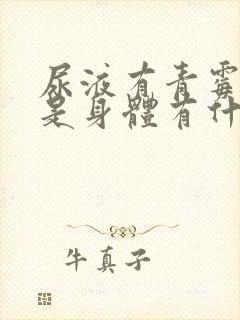 尿液有青霉
是身體有什
牛真子